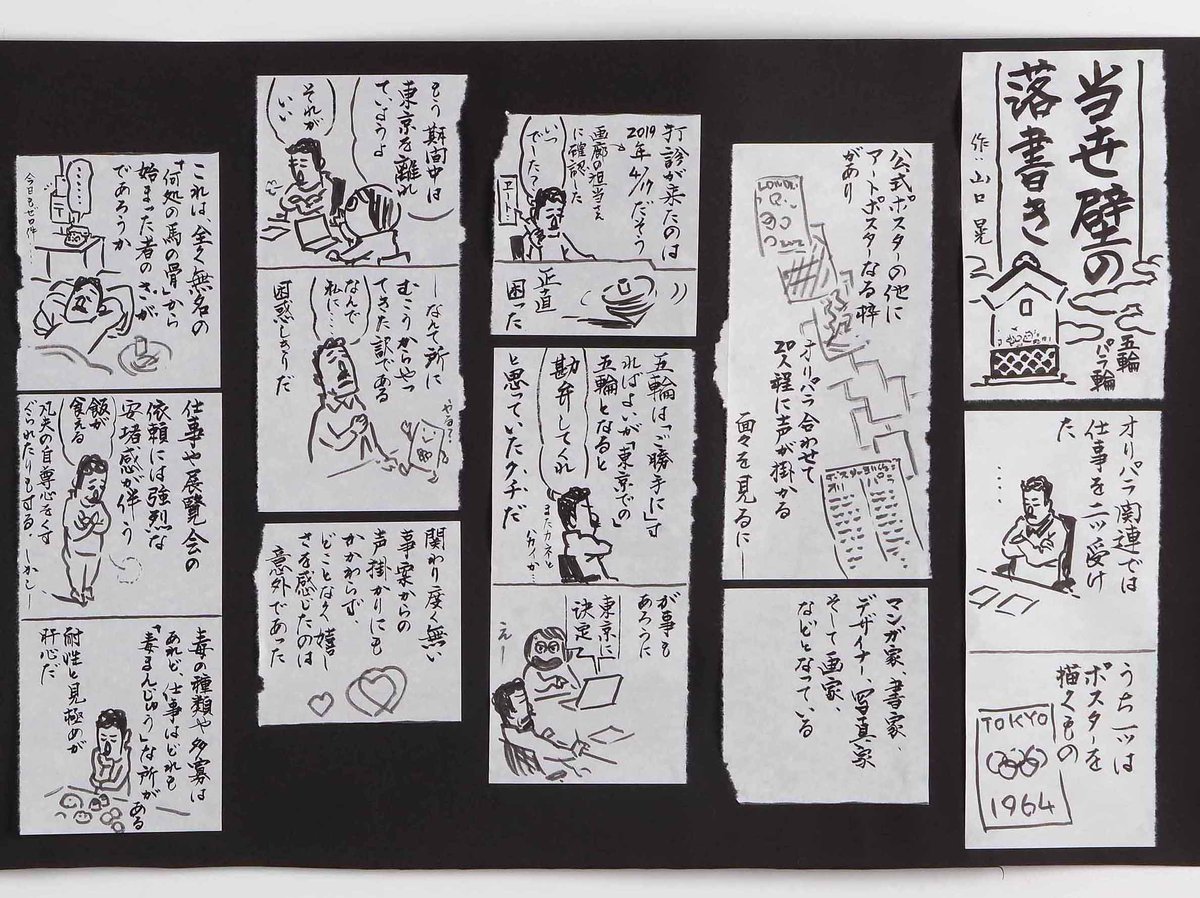 当世壁の
落書き
作:山口晃
五輪
パラ輪
オリパラ関連では
仕事を二ツ受け
た
…
うち一ツは
ポスターを
描くもの
TOKYO
1964
公式ポスターの他に
アートポスターなる枠
があり
オリパラ合わせて
20人程に声が掛かる
面々を見るに―
マンガ家、書家、
デザイナー、写真家
そして画家、
などとなっている
打診が来たのは
2019年4/17だそう
画廊の担当さん
に確認した
いつ
でした?
エート…
正直
困った
五輪は「ご勝手に」す
ればよいが「東京での」
五輪となると
勘弁してくれ
と思っていたクチだ
またカネと
が事も
あろうに
東京に
決定
えー
もう期間中は
東京を離れ
ていようよ
それが
いい
―なんて所に
むこうからやっ
てきた訳である
なんで
私に…
やる?
困惑しきりだ
関わり度く無い
事案からの
声掛かりにも
かかわらず、
どことなく嬉し
さを感じたのは
意外であった
これは、全く無名の
「何処の馬の骨」から
始まった者のさが
であろうか
……
今日もゼロ件…
仕事や展覧会の
依頼には強烈な
安堵感が伴う
飯が
食える
凡夫の自尊心をくす
ぐられたりもする。しかし―
毒の種類や多寡は
あれど、仕事はどれも
「毒まんじゅう」な所が
ある
耐性と見極めが
肝心だ